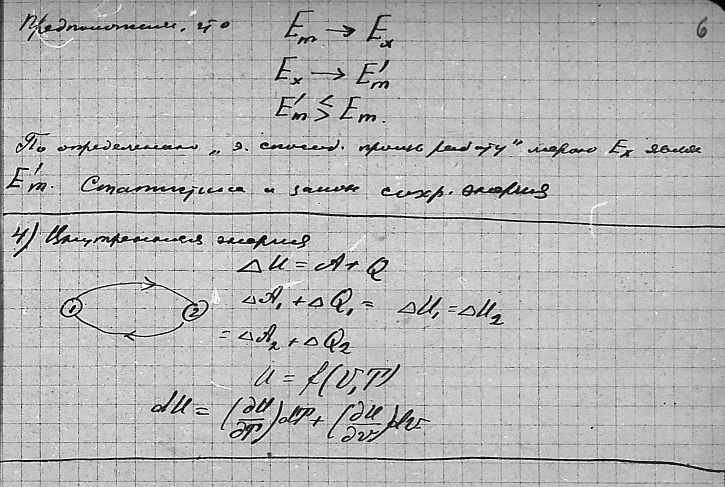 6
Предположим, что E_m → E_x
E_x → E'_m
E'_m ≶ E_m.
По определению „э. способ. произв работу" мерою E_x являе
E'_m. Статистика и закон сохр. энергия
4) Внутренняя энергия
ΔU = A + Q
① ② ΔA₁ + ΔQ₁ = ΔU₁ = ΔU₂
= ΔA₂ + ΔQ₂
U = f(V,T)
dU = (∂U/∂T)dT + (∂U/∂v)dv